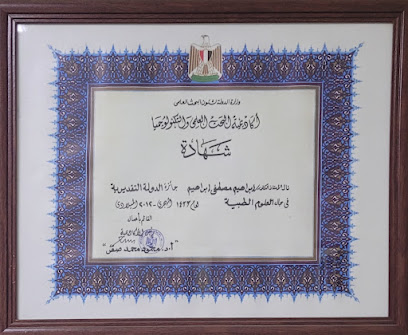 وزارة الدولة لشئون البحث العلمى
أكاديمية البحث العلمى والتكنولوجيا
شهادة
نال الأستاذ الدكتور إبراهيم مصطفى إبراهيم جائزة الدولة التقديرية
فى مجال العلوم الطبية لعام ١٤٣٣ الهجرى - ٢٠١٢ الميلادى
القائم بأعمال
رئيس الأكاديمية
"أ.د. محمود محمد صقر"